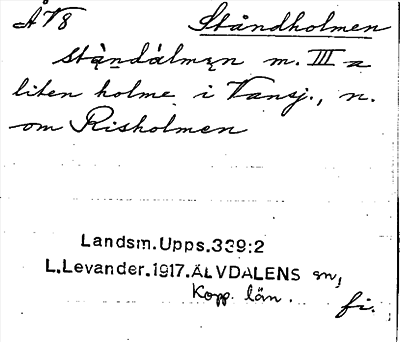 ÅV8 Ståndholmen
ståndålmen m. III a
liten holme i Vansj., n.
om Risholmen
Landsm.Upps.339:2
L.Levander.1917.ÄLVDALENS sn,
Kopp. län.
fi.